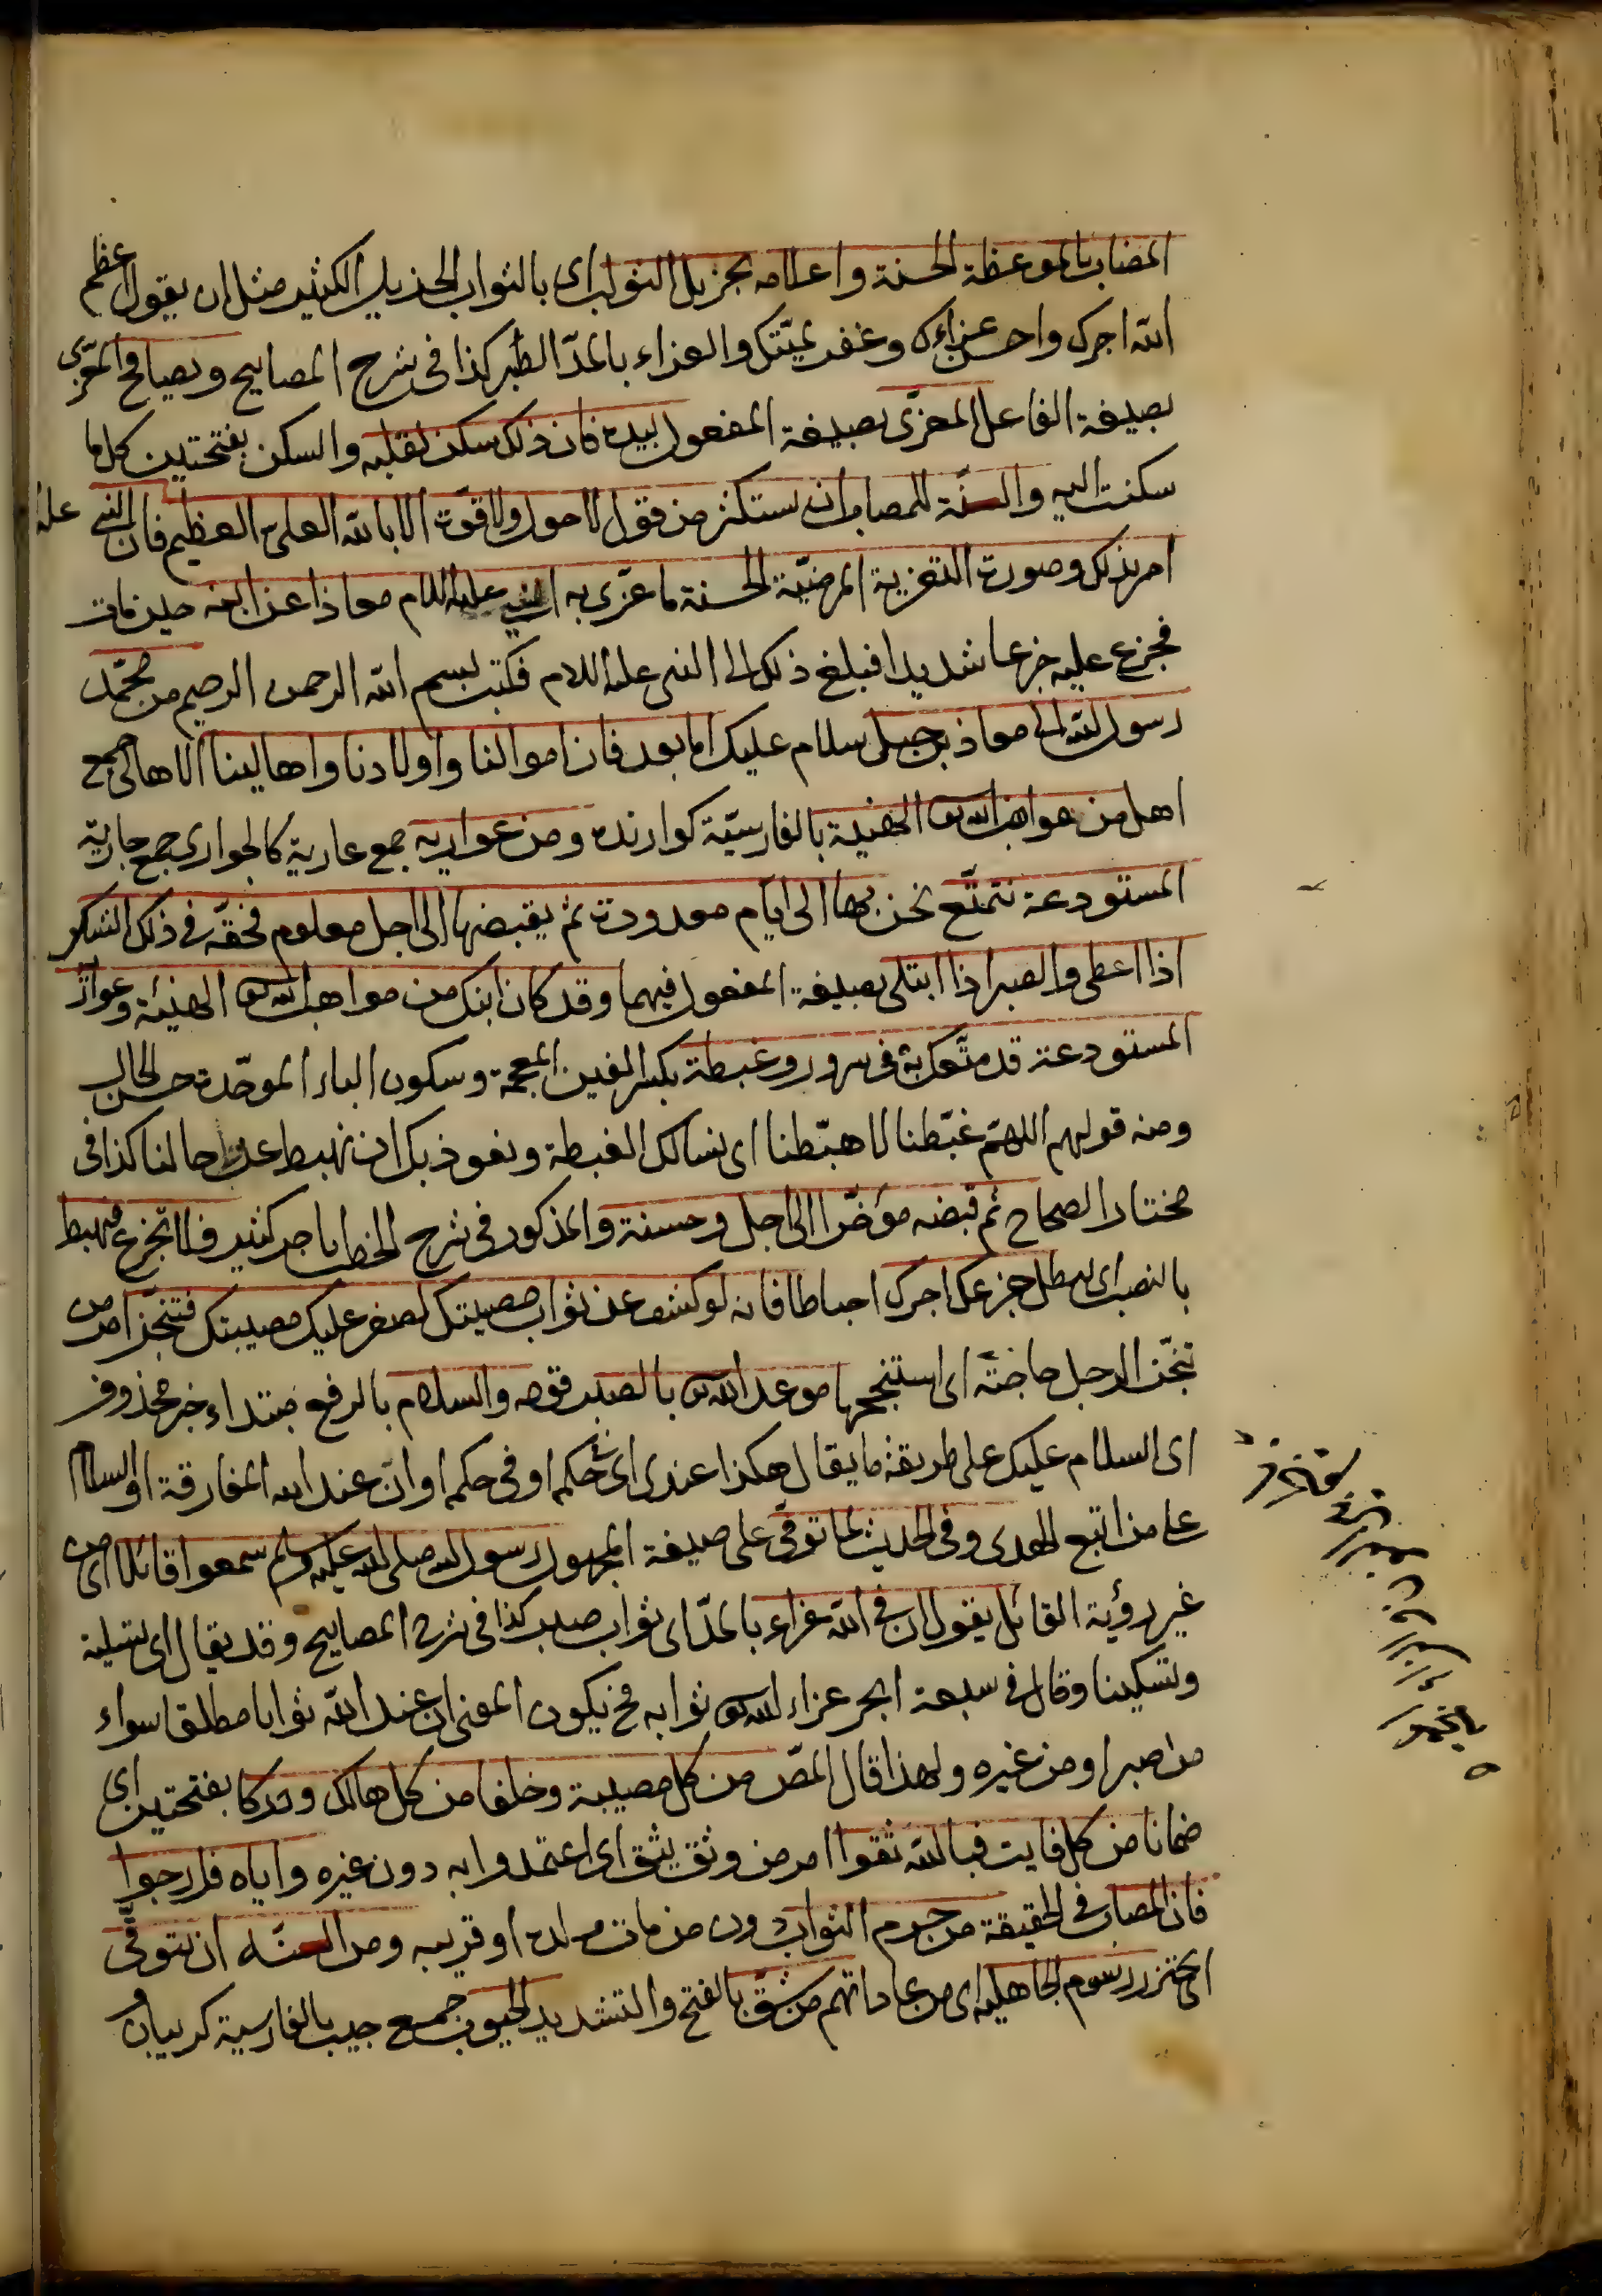 المصاب بالموعظة الحسنة واعلامه بجزيل الثواب اى بالثواب الجزيل الكثير مثل ان يقول اعظم
الله اجرك واحسن عزاءك وغفر لميتك والعزاء بالمدّ الصبر كذا فى شرح المصابيح ويصافح المعزّى
بصيغة الفاعل المعزّى بصيغة المفعول بيده فان ذلك سكن لقلبه والسكن بفتحتين كل ما
سكنت اليه والسنّة للمصاب ان يستكثر من قول لا حول ولا قوّة الا بالله العلى العظيم فان النبى عليه
امر بذلك وصورة التعزية المرضيّة الحسنة ما عزّى به النبى عليه السلام معاذا عن ابنه حين مات
فجزع عليه جزعا شديدا فبلغ ذلك الى النبى عليه السلام فكتب بسم الله الرحمن الرحيم من محمّد
رسول الله الى معاذ بن جبل سلام عليك اما بعد فان اموالنا واولادنا واهالينا الاهالى جمع
اهل من مواهب الله تع الهنيئة بالفارسيّة كوارنده ومن عواريه جمع عارية كالجوارى جمع جارية
المستودعة نتمتّع نحن بها الى ايّام معدودة ثم يقبضها الى اجل معلوم فحقّه فى ذلك الشكر
اذا اعطى والصبر اذا ابتلى بصيغة المفعول فيهما وقد كان ابنك من مواهب الله تع الهنيئة وعواريه
المستودعة قد متّعك به فى سرور وغبطة بكسر الغين المعجمة وسكون الباء الموحّدة حسن الحال
ومنه قولهم اللهمّ غبّطنا لا هبّطنا اى نسالك الغبطة ونعوذ بك ان نهبط عن حالنا كذا فى
مختار الصحاح ثم قبضه مؤخّرا الى اجل وحسنة والمذكور فى شرح الخطب باجر كثير فلا تجزع فيهبط
بالنصب اى يبطل جزعك اجرك احباطا فانه لو كشف عن ثواب مصيبتك لصغر عليك مصيبتك فتنجّز امر من
تنجّز الرجل حاجته اى استنجحها موعد الله تع بالصبر فقوله والسلام بالرفع مبتداء خبره محذوف
اى السلام عليك على طريقة ما يقال هكذا عندى اى فى حكمه او فى حكم او ان عند الله المفارقة او السلام
على من اتبع الهدى وفى الحديث لما توفّى على صيغة المجهول رسول الله صلى الله عليه وسلم سمعوا قائلا اى من
غير رؤية القائل يقول ان فى الله عزاء بالمدّ اى ثواب صبر كذا فى شرح المصابيح وقد يقال اى تسلية
وتسكينا وقال فى سبعة ابحر عزاء الله تع ثوابه فح يكون المعنى ان عند الله ثوابا مطلقا سواء
من صبر او من غيره ولهذا قال المصّ من كل مصيبة وخلفا من كل هالك ودركا بفتحتين اى
ضمانا من كل فايت فبالله ثقوا امر من وثق يثق اى اعتمدوا به دون غيره واياه فارجوا
فان المصاب فى الحقيقة من حرم الثواب دون من مات ولده او قريبه ومن السنّة ان يتوقّى
اى يحترز رسوم الجاهلية اى من عاداتهم من شقّ بالفتح والتشديد الجيوب جمع جيب بالفارسية كريبان و